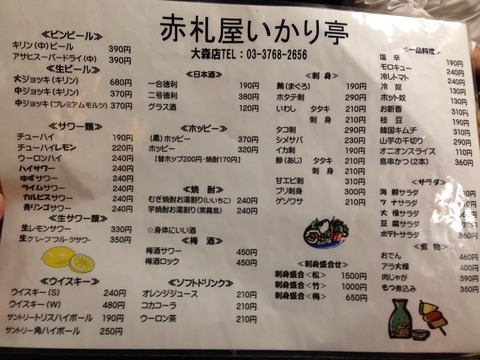 赤札屋いかり亭
大森店TEL：03-3768-2656
≪ビンビール≫
キリン(中)ビール 390円
アサヒスーパードライ(中) 390円
≪生ビール≫
大ジョッキ(キリン) 680円
中ジョッキ(キリン) 370円
中ジョッキ(プレミアムモルツ) 370円
≪サワー類≫
チューハイ 190円
チューハイレモン 220円
ウーロンハイ 240円
ハイサワー 240円
ゆずサワー 240円
ライムサワー 240円
カルピスサワー 240円
青リンゴサワー 240円
≪生サワー類≫
生レモンサワー 330円
生グレープフルーツサワー 350円
≪ウイスキー≫
ウイスキー(S) 240円
ウイスキー(W) 480円
サントリートリスハイボール 190円
サントリー角ハイボール 250円
≪日本酒≫
一合徳利 190円
二号徳利 380円
グラス酒 120円
≪ホッピー≫
(黒)ホッピー 370円
ホッピー 370円
[替ホップ200円・焼酎170円]
≪焼酎≫
むぎ焼酎お湯割り(いいちこ) 240円
芋焼酎お湯割り(黒霧島) 240円
☆身体にいい酒
≪梅酒≫
梅酒サワー 450円
梅酒ロック 450円
≪ソフトドリンク≫
オレンジジュース 210円
コカコーラ 210円
ウーロン茶 210円
≪刺身≫
鮪(まぐろ) 190円
ホタテ刺 290円
いわし タタキ 210円
刺身 210円
タコ刺 290円
シメサバ 230円
イカ刺 190円
鯵(あじ) タタキ 210円
刺身 210円
甘エビ刺 310円
ブリ刺身 300円
ゲソワサ 210円
≪刺身盛合せ≫
刺身盛合<松> 1500円
刺身盛合<竹> 1000円
刺身盛合<梅> 650円
≪一品料理≫
塩辛 190円
モロキュー 190円
冷しトマト 240円
冷奴 210円
ホット奴 210円
お新香 210円
枝豆 210円
韓国キムチ 310円
山芋の千切り 290円
オニオンスライス 110円
鳥串かつ(2本) 360円
≪サラダ≫
海鮮サラダ 310円
ツナサラダ 260円
大根サラダ
豆腐サラダ
ポテトサラダ 260円
≪煮物≫
おでん 460円
アラ大根 400円
肉じゃが 390円
もつ煮込み 350円